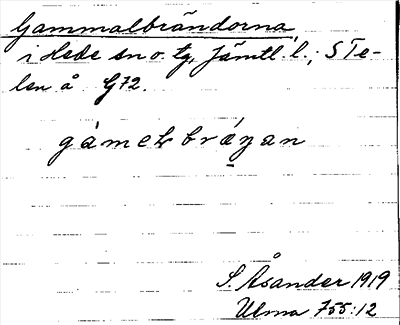 Gammalbrändorna
i Hede sn o. tg, Jämtl. l.; S Te-
len å G72.
gámelbrą́ŋan
S. Åsander 1919
Ulma 755:12